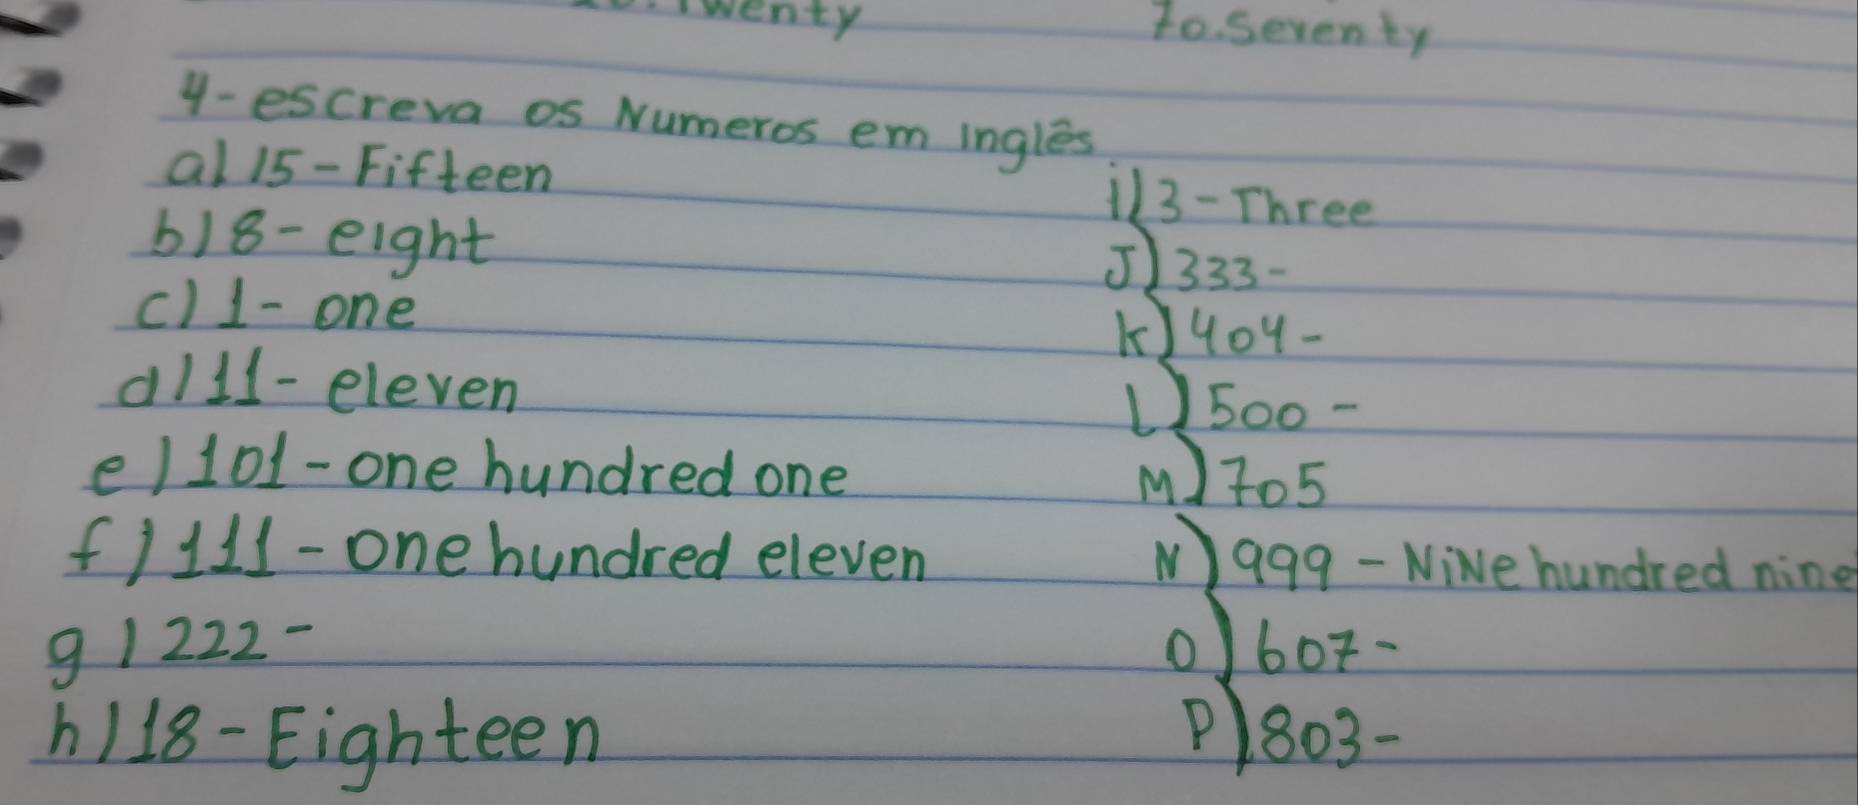 Twenty
70. Seventy
4-escreva os Numeros em inglês
a) 15 - Fifteen
b) 8 - eight
c) 1 - one
d) 11 - eleven
e) 101 - one hundred one
f) 111 - one hundred eleven
g) 222 -
h) 18 - Eighteen
i) 3 - Three
J) 333 -
k) 404 -
L) 500 -
M) 705
N) 999 - NiNe hundred nine
O) 607 -
P) 803 -